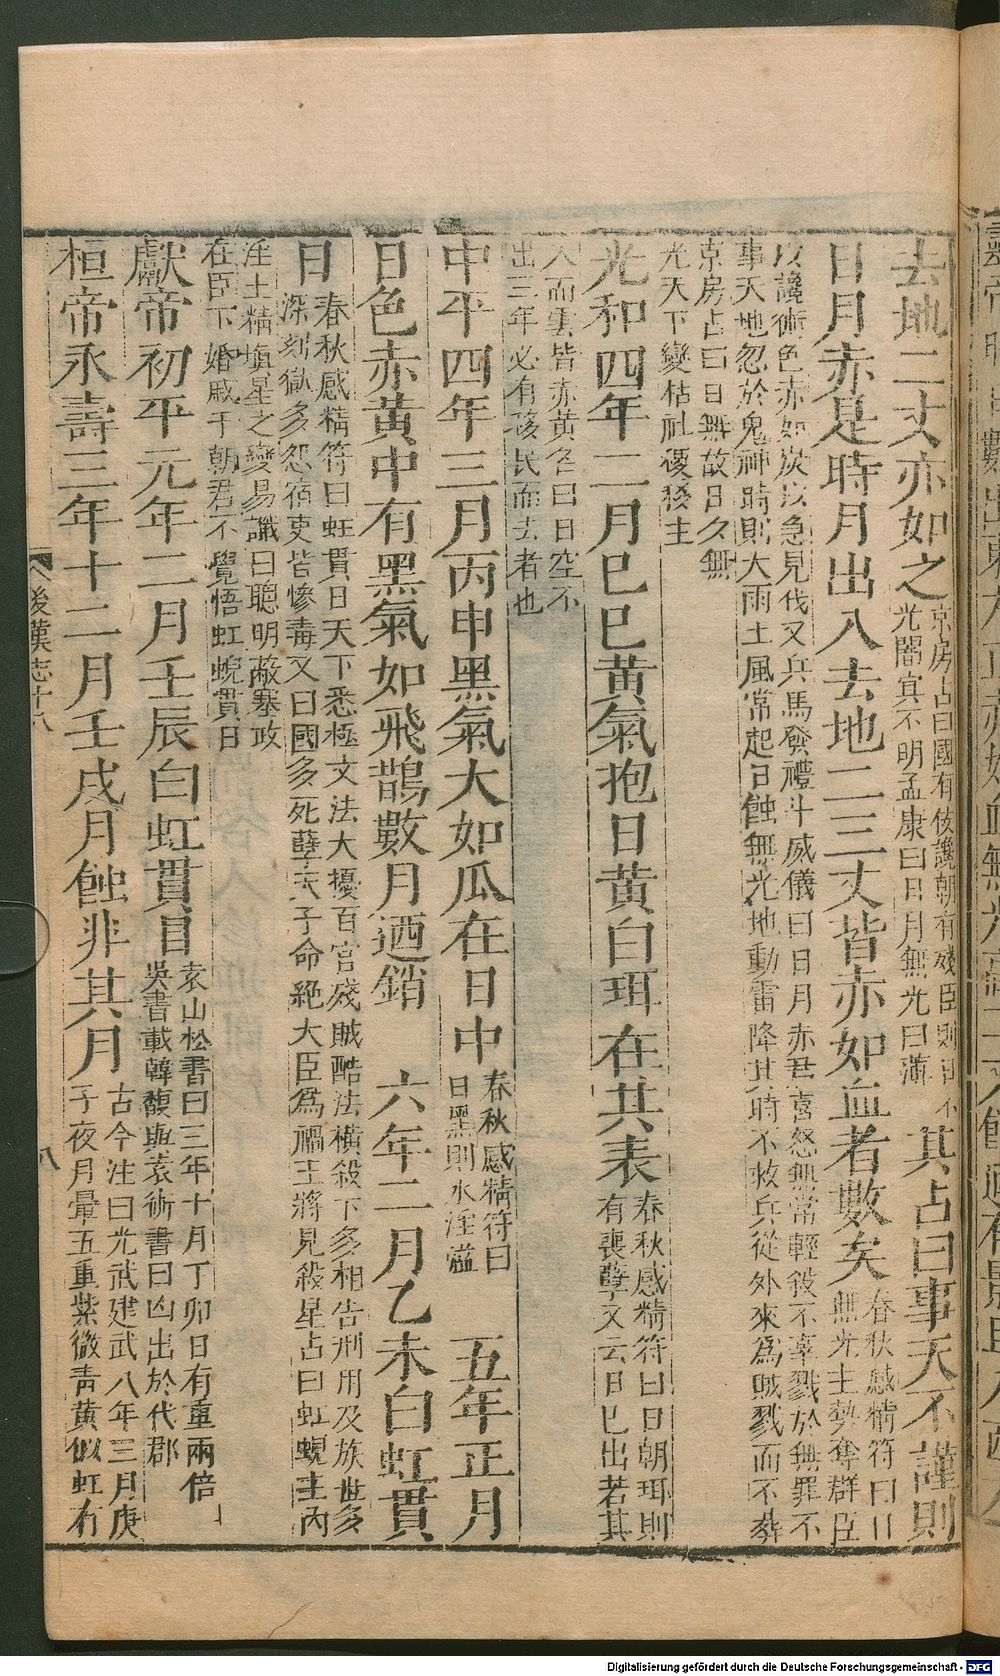 去地二丈亦如之京房占曰國有佞讒朝有殘臣則日不光闇冥不明孟康曰日月無光曰薄其占曰事天不謹則
日月赤是時月出入去地二三丈皆赤如血者數矣春秋感精符曰日無光主勢奪群臣
以讒術色赤如炭以急見伐又兵馬發禮斗威儀曰日月赤君喜怒無常輕殺不辜戮於無罪不
事天地忽於鬼神時則大雨土風常起日蝕無光地動雷降其時不救兵從外來為賊戮而不葬
京房占曰日無故日夕無
光天下變枯社稷移主
光和四年二月己巳黃氣抱日黃白珥在其表春秋感精符曰日朝珥則有喪孽又云日已出若其
入而雲皆赤黃名曰日空不
出三年必有移民而去者也
中平四年三月丙申黑氣大如瓜在日中春秋感精符曰日黑則水淫溢 五年正月
日色赤黃中有黑氣如飛鵲數月迺銷 六年二月乙未白虹貫
日春秋感精符曰虹貫日天下悉極文法大擾百官殘賊酷法橫殺下多相告刑用及族世多
深刻獄多怨宿吏皆慘毒又曰國多死孽天子命絕大臣為禍主將見殺星占曰虹蜺主內
淫土精塡星之變易讖曰聰明蔽塞政
在臣下婚戚干朝君不覺悟虹蜺貫日
獻帝初平元年二月壬辰白虹貫日袁山松書曰三年十月丁卯日有重兩倍吳書載韓馥與袁術書曰凶出於代郡
桓帝永壽三年十二月壬戌月蝕非其月古今注曰光武建武八年三月庚子夜月暈五重紫微青黃似虹有
後漢志十八
八
Digitalisierung gefördert durch die Deutsche Forschungsgemeinschaft - DFG